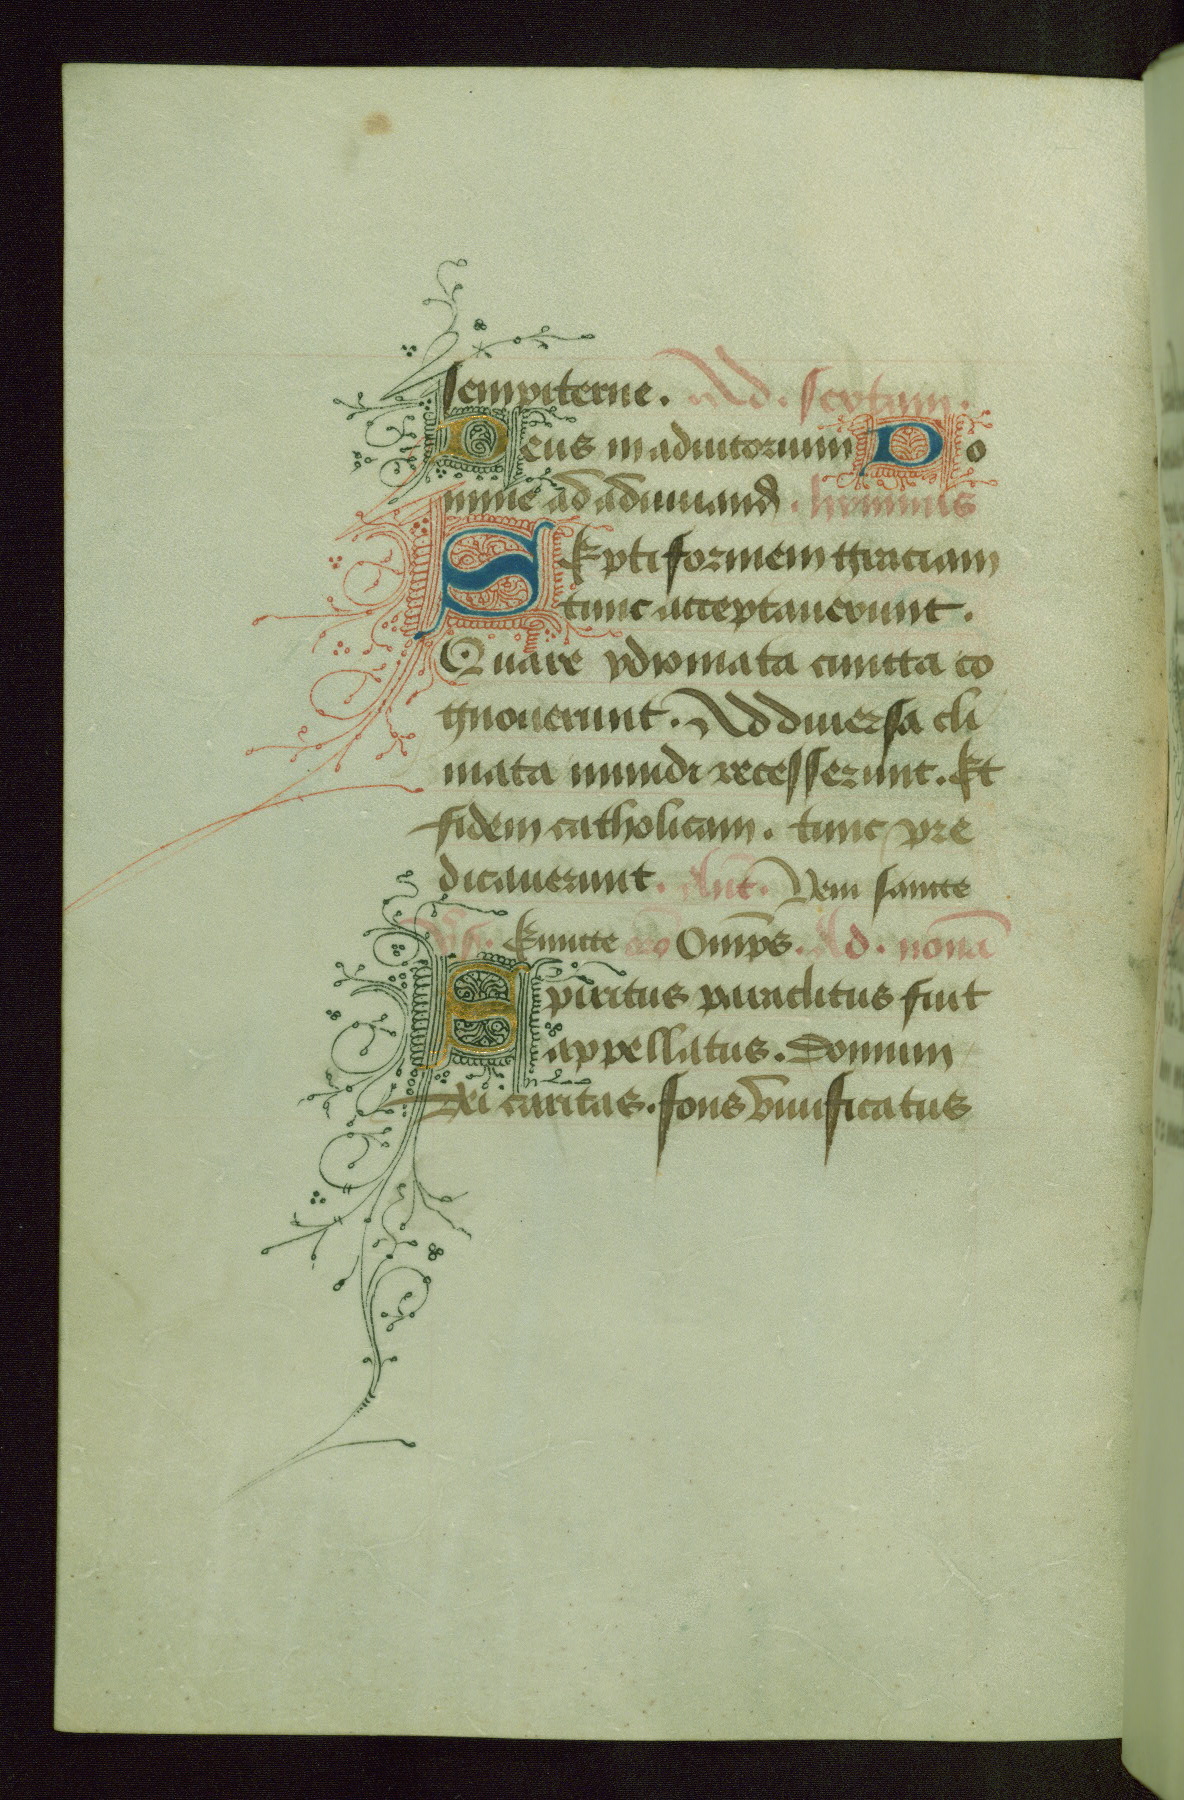 sempiterne. Ad. sextam.
Deus in adiutorium Do
mine ad̄ ad̄iuuand̄. hympnus
Septiformem graciam
tunc acceptauerunt.
Quare ydiomata cuncta co
gnouerunt. Ad diuersa cli
mata mundi recesserunt. Et
fidem catholicam. tunc pre
dicauerunt. Ant̄. Veni sancte
Emitte Om̄ps. Ad. nonā
Spiritus paraclitus fuit
appellatus. Donum
dei caritas. fons viuificatus